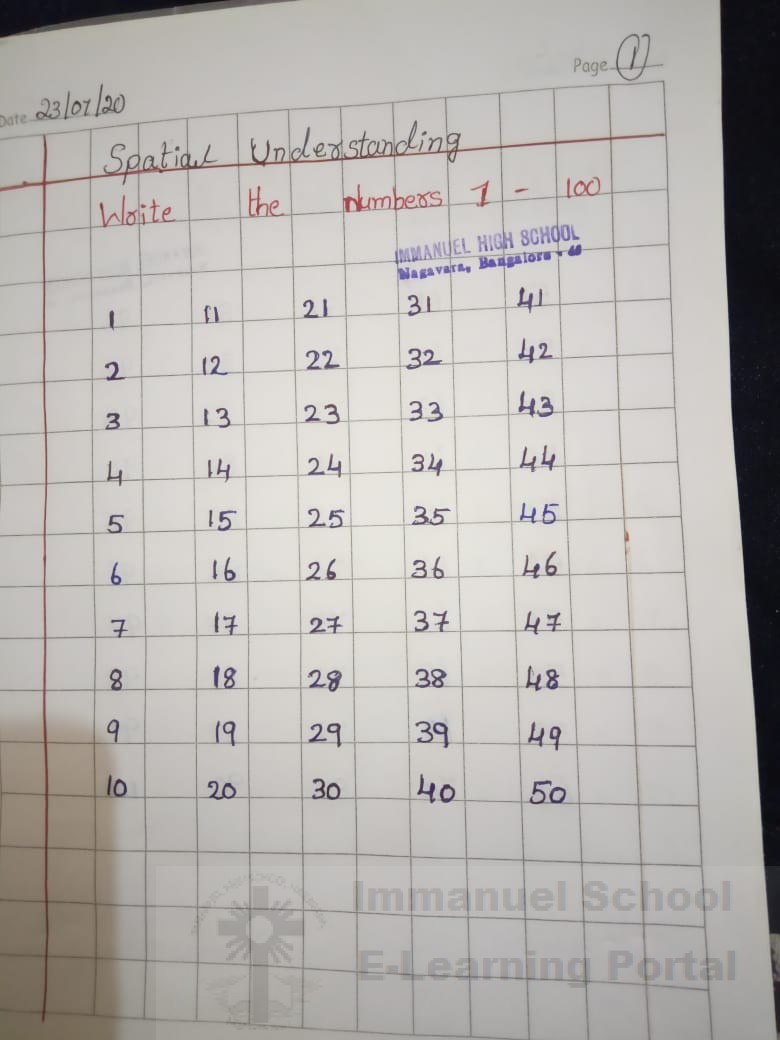 Page 1
Date 23/07/20
Spatial Understanding
Write the numbers 1 - 100
IMMANUEL HIGH SCHOOL
Nagavara, Bangalore - 45
1 11 21 31 41
2 12 22 32 42
3 13 23 33 43
4 14 24 34 44
5 15 25 35 45
6 16 26 36 46
7 17 27 37 47
8 18 28 38 48
9 19 29 39 49
10 20 30 40 50
Immanuel School
E-Learning Portal